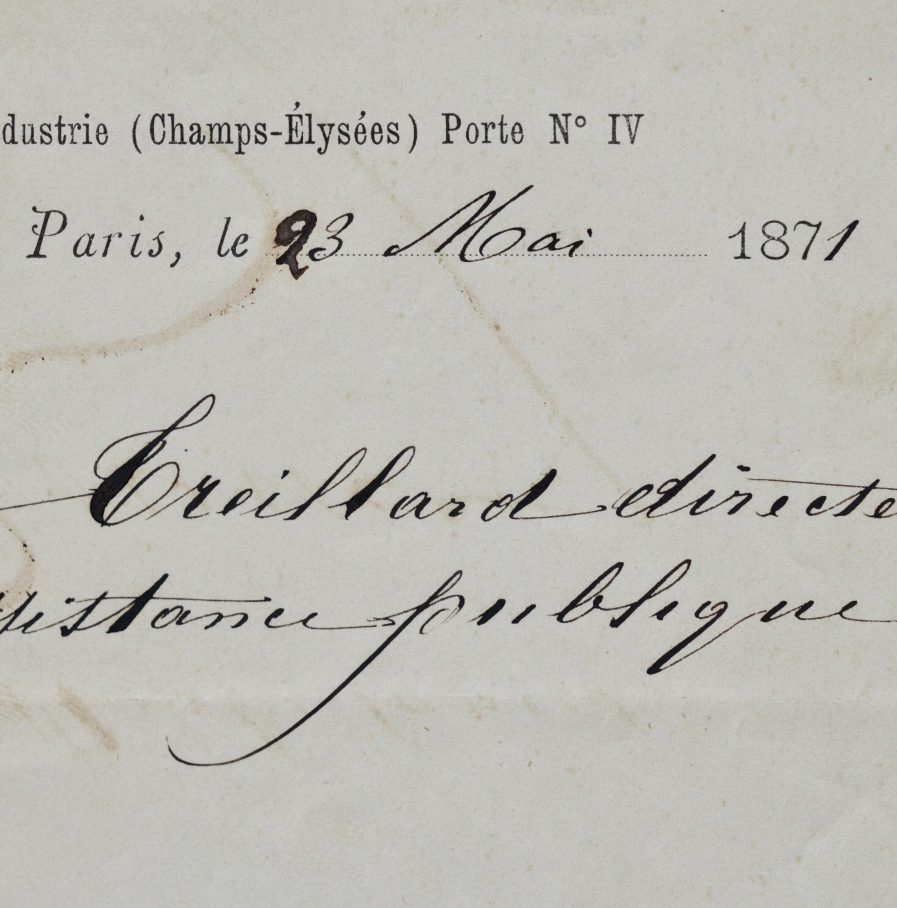 dustrie (Champs-Élysées) Porte N° IV
Paris, le 23 Mai 1871
Treillard directe
ssistance publique